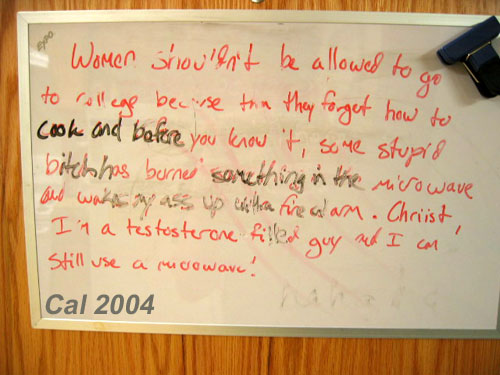 Women shouldn't be allowed to go
to college because then they forget how to
cook and before you know it, some stupid
bitch has burned something in the microwave
and wakes my ass up with a fire alarm. Chriist,
I'm a testosterone filled guy and I can
still use a microwave!
hahaha
Cal 2004